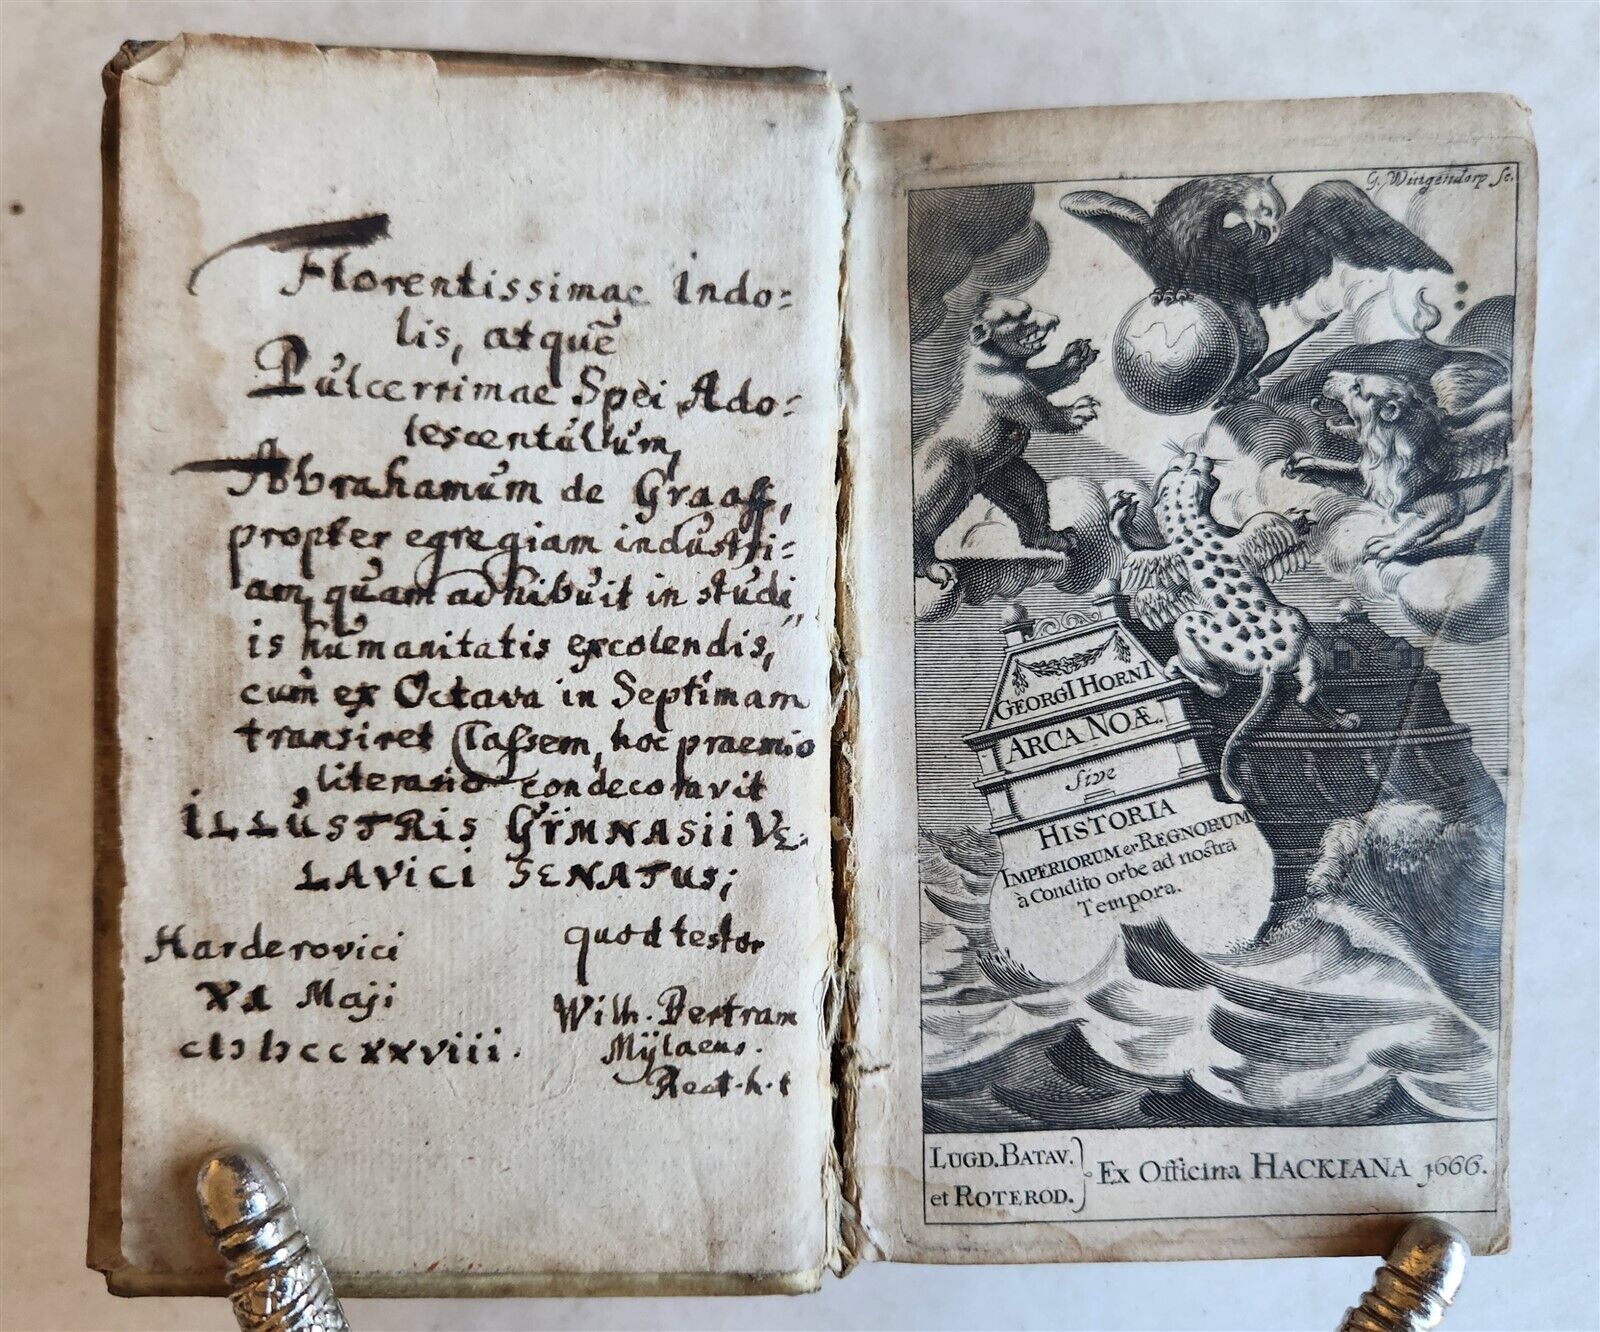 Florentissimae Indo=
lis, atquē
Pulcerrimae Spèi Ado=
lescentulum,
Abrahamum de Graaff,
propter egregiam industri=
am, quam adhibuit in studi,,
is humanitatis excolendis,
cum ex Octava in Septimam
transiret Classem, hoc praemio
literario condecoravit
ILLUSTRIS GŸMNASII VE=
LAVICI SENATUS;
quod testor
Harderovici
XI Maji
cIↄ Iↄccxxviii.
Wilh. Bertram
Mÿlaeus.
Rect. h. t
G. Wingendorp Sc.
GEORGI HORNI
ARCA NOÆ.
sive
HISTORIA
IMPERIORUM et REGNORUM
à Condito orbe ad nostra
Tempora.
LUGD. BATAV. } Ex Officina HACKIANA 1666.
et ROTEROD.